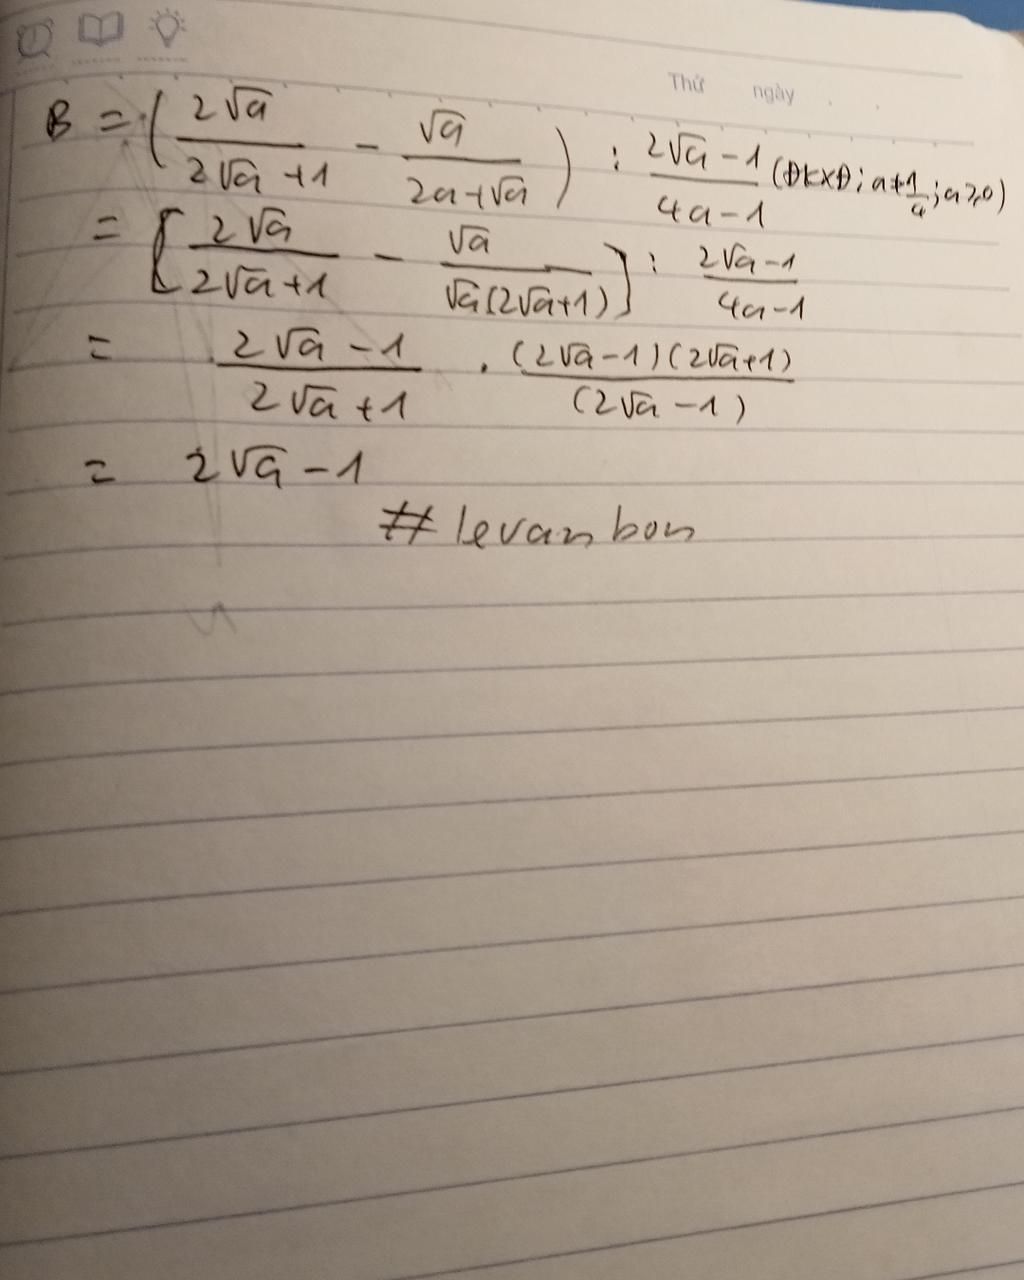 Thứ ngày
B = ( 2√a / 2√a + 1 - √a / 2a + √a ) : 2√a - 1 / 4a - 1 (ĐKXĐ; a ≠ 1/4; a ≥ 0)
= [ 2√a / 2√a + 1 - √a / √a(2√a+1) ] : 2√a - 1 / 4a - 1
= 2√a - 1 / 2√a + 1 . (2√a - 1)(2√a+1) / (2√a - 1)
= 2√a - 1
# levanbon